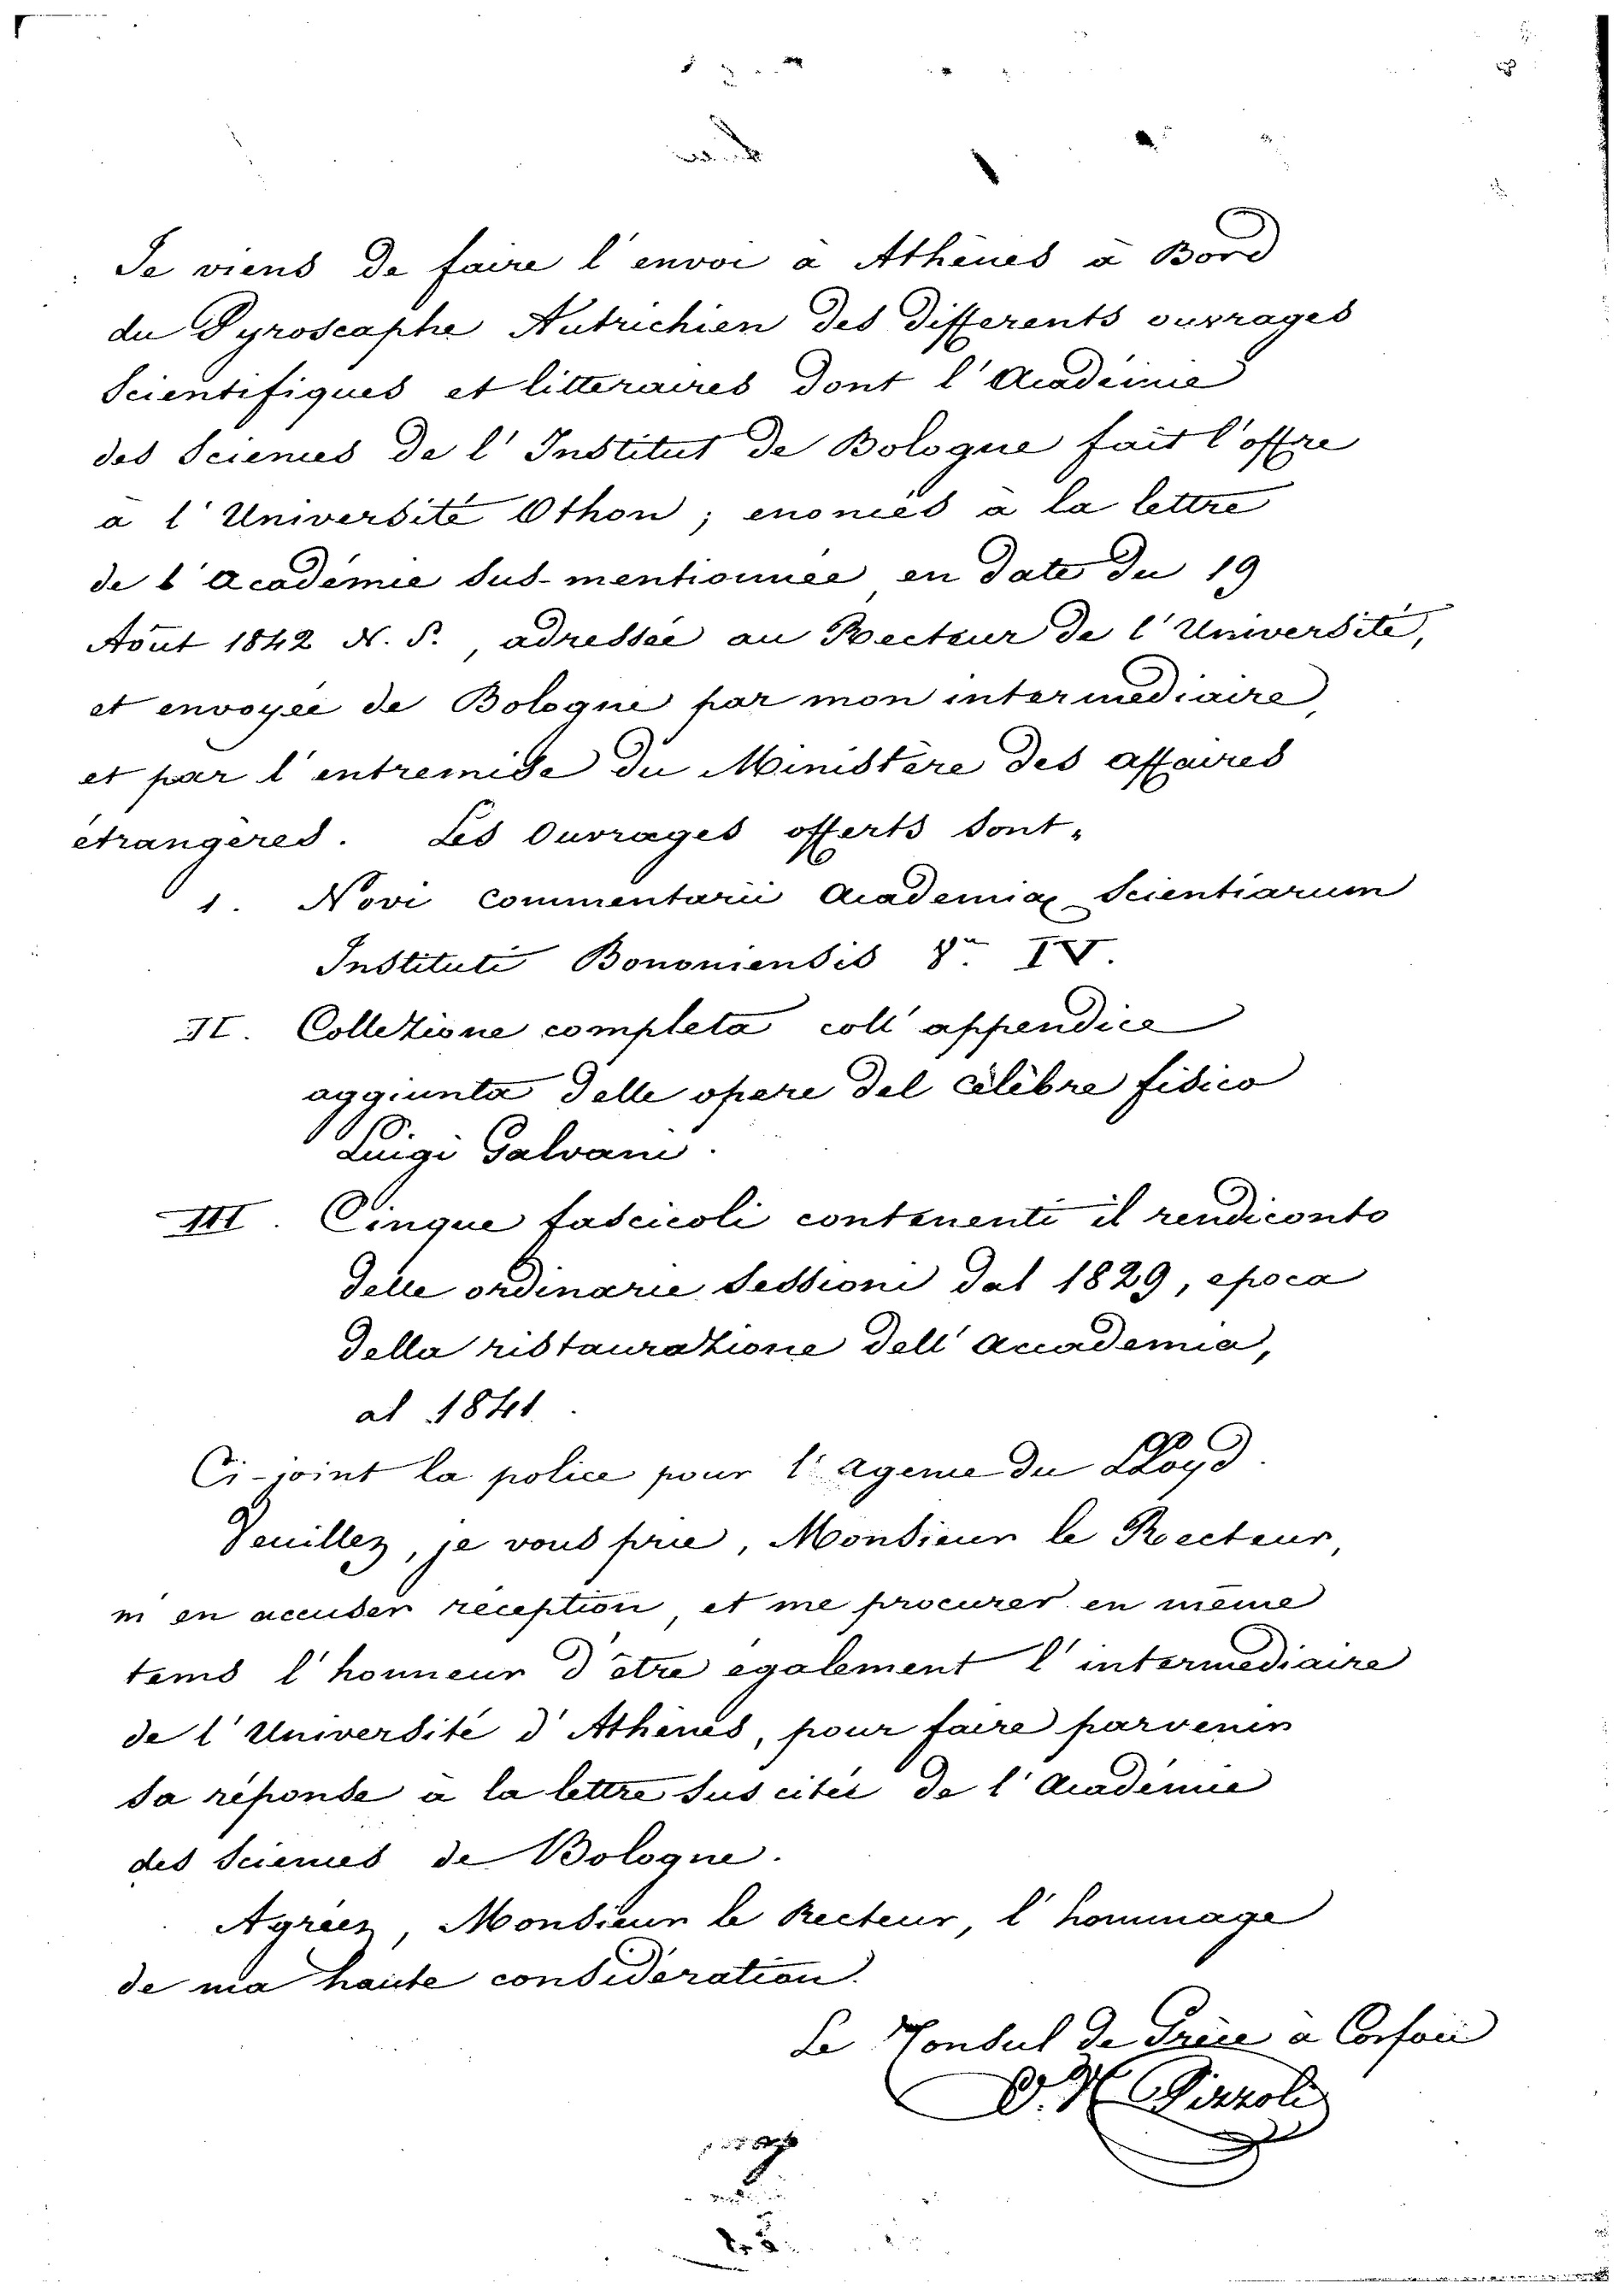 Je viens de faire l'envoi à Athènes à Bord
du Pyroscaphe Autrichien des differents ouvrages
Scientifiques et litteraires dont l'Académie
des Sciences de l'Institut de Bologne fait l'offre
à l'Université Othon; enoncés à la lettre
de l'Académie sus-mentionnée en date du 19
Août 1842 N. S., adressée au Recteur de l'Université,
et envoyée de Bologne par mon intermediaire,
et par l'entremise du Ministère des affaires
étrangères. Les Ouvrages offerts sont.
1. Novi Commentarii Academiae Scientiarum
Instituti Bononiensis IV.
II. Collezione completa coll'appendice
aggiunta delle opere del célèbre fisico
Luigi Galvani.
III. Cinque fascicoli contenenti il rendiconto
delle ordinarie Sessioni dal 1829, epoca
della ristaurazione dell'Accademia,
al 1841.
Ci-joint la police pour l'agence du Lloyd.
Veuillez, je vous prie, Monsieur le Recteur,
m'en accuser réception, et me procurer en même
tems l'honneur d'être également l'intermediaire
de l'Université d'Athènes, pour faire parvenir
sa réponse à la lettre suscitée de l'Académie
des Sciences de Bologne.
Agréez, Monsieur le Recteur, l'hommage
de ma haute considération.
Le Consul de Grèce à Corfou